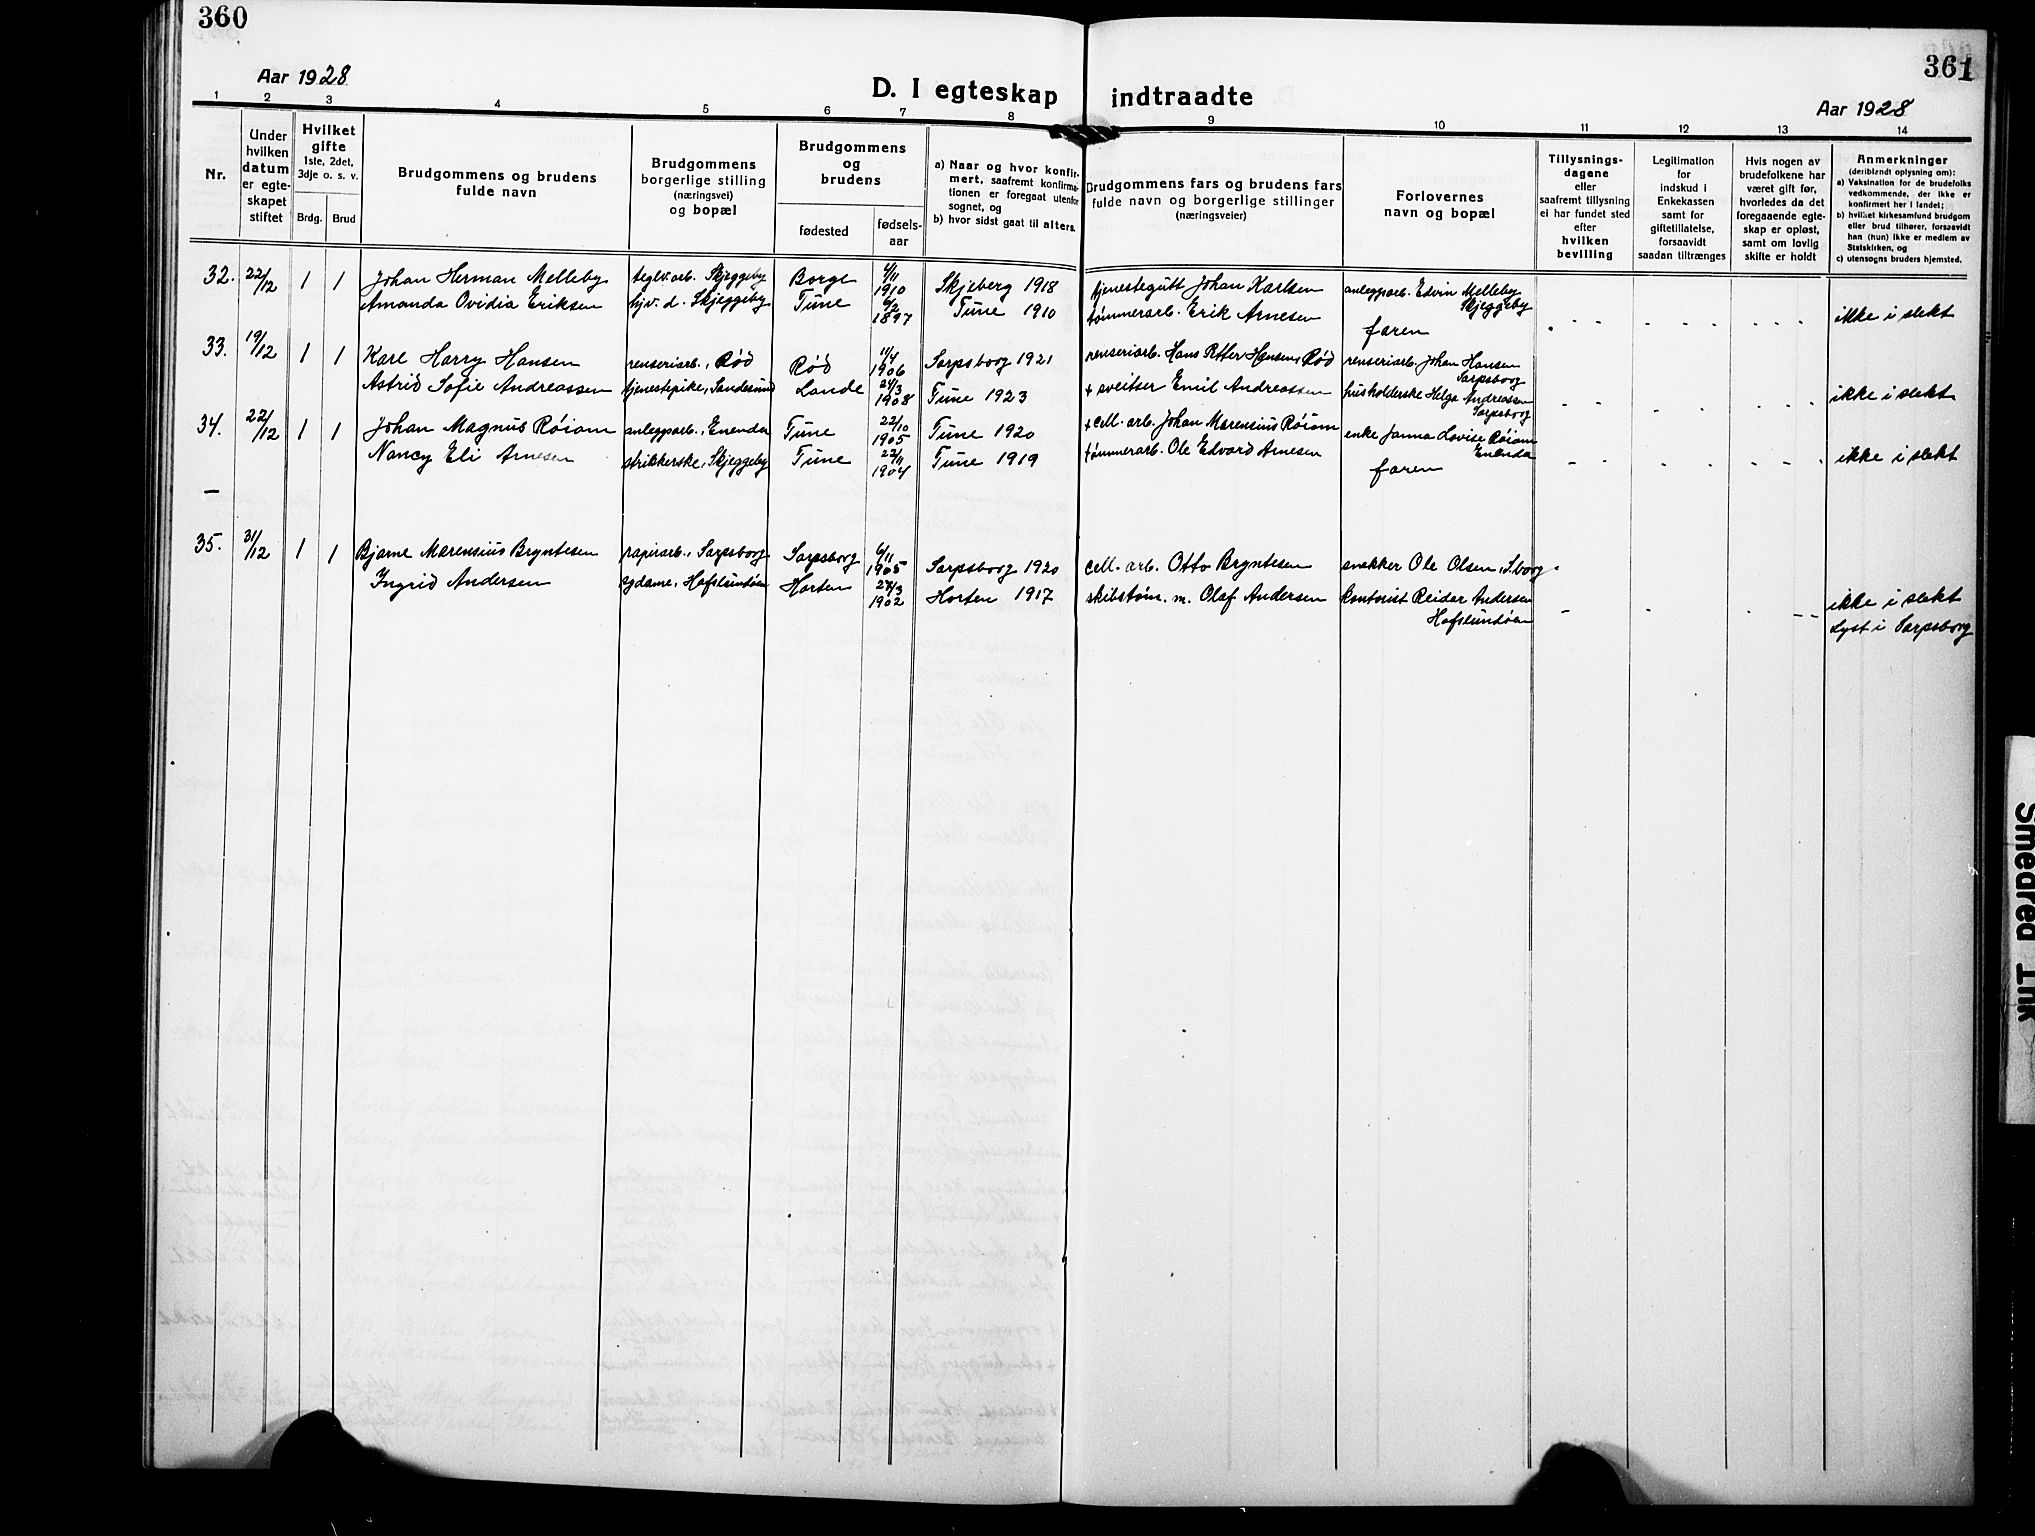 360
361
Aar 1928
D. I egteskap indtraadte
Aar 1928
1 2 3 4 5 6 7 8 9 10 11 12 13 14
Nr.
Under hvilken datum er egte-skapet stiftet
Hvilket gifte 1ste, 2det, 3dje o. s. v.
Brdg. Brud
Brudgommens og brudens fulde navn
Brudgommens borgerlige stilling (næringsvei) og bopæl
Brudgommens og brudens
fødested
fødsels-aar
a) Naar og hvor konfir-mert, saafremt konfirma-tionen er foregaat utenfor sognet, og
b) hvor sidst gaat til alters.
Brudgommens fars og brudens fars fulde navn og borgerlige stillinger (næringsveier)
Forlovernes navn og bopæl
Tillysnings-dagene eller saafremt tillysning ei har fundet sted efter hvilken bevilling
Legitimation for indskud i Enkekassen samt for giftetillatelse, forsaavidt saadan tiltrænges
Hvis nogen av brudefolkene har været gift før, hvorledes da det foregaaende egte-skap er opløst, samt om lovlig skifte er holdt
Anmerkninger (deriblandt oplysning om):
a) Vaksination for de brudefolks vedkommende, der ikke er konfirmert her i landet;
b) hvilket kirkesamfund brudgom eller brud tilhører, forsaavidt han (hun) ikke er medlem av Statskirken, og
c) utensogns bruders hjemsted.
32. 22/12 1 1 Johan Herman Melleby teglv.arb. Skjeggeby Borge 4/11 1910 Skjeberg 1918 tjenestegutt Johan Karlsen anleggsarb. Edvin Melleby Skjeggeby
Amanda Ovidia Eriksen hjv. d. Skjeggeby Tune 6/2 1897 Tune 1910 tømmerarb. Erik Arnesen faren ikke i slekt
33. 19/12 1 1 Karl Harry Hansen renseriarb., Rød Rød 11/4 1906 Sarpsborg 1921 renseriarb. Hans Petter Hansen, Rød renseriarb. Johan Hansen Sarpsborg
Astrid Sofie Andreassen tjenestepike, Sandesund Lande 24/3 1908 Tune 1923 + sveitser Emil Andreassen husholderske Helga Andreassen Sarpsborg ikke i slekt
34. 22/12 1 1 Johan Magnus Røiom anleggsarb., Enenda Tune 22/10 1905 Tune 1920 + cell. arb. Johan Marensius Røiom enke Janna Lovise Røiom Enenda
Nancy Eli Arnesen strikkerske, Skjeggeby Tune 22/11 1904 Tune 1919 tømmerarb. Ole Edvard Arnesen faren ikke i slekt
—
35. 31/12 1 1 Bjarne Marensius Bryntesen papirarb., Sarpsborg Sarpsborg 6/11 1905 Sarpsborg 1920 cell. arb. Otto Bryntesen snekker Ole Olsen, S.borg
Ingrid Andersen sydame, Hafslundøen Horten 27/3 1902 Horten 1917 skibstøm. m. Olaf Andersen kontorist Reidar Andersen Hafslundøen ikke i slekt
Lyst i Sarpsborg
Smeared Ink